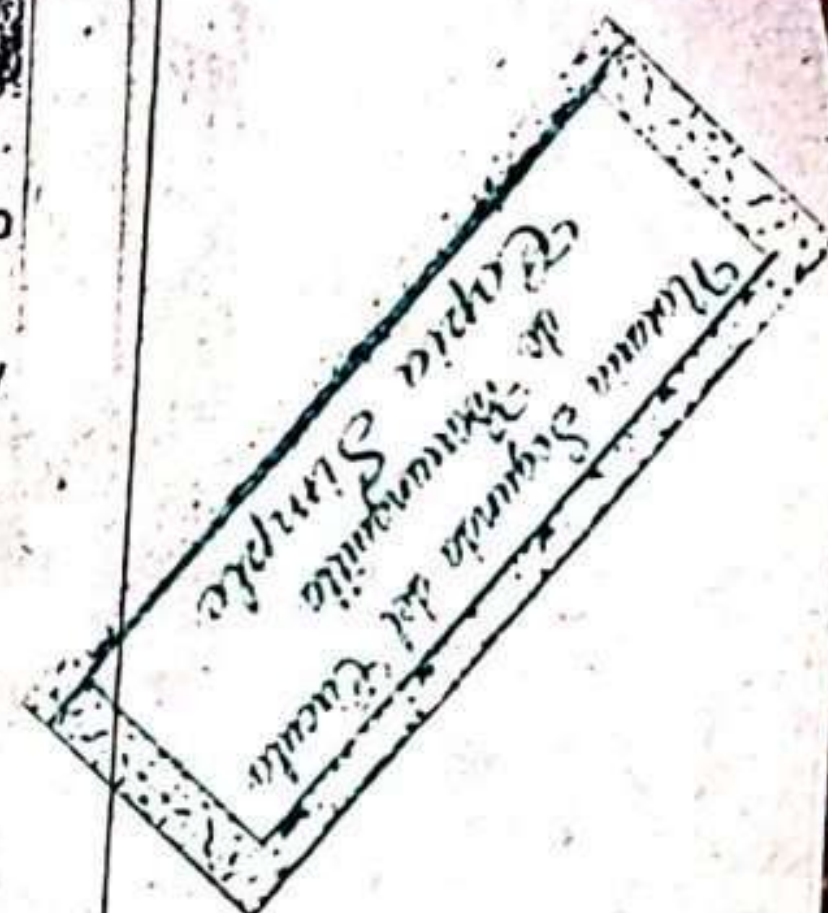 Notaria Segunda del Circulo
de Barranquilla
Copia Simple